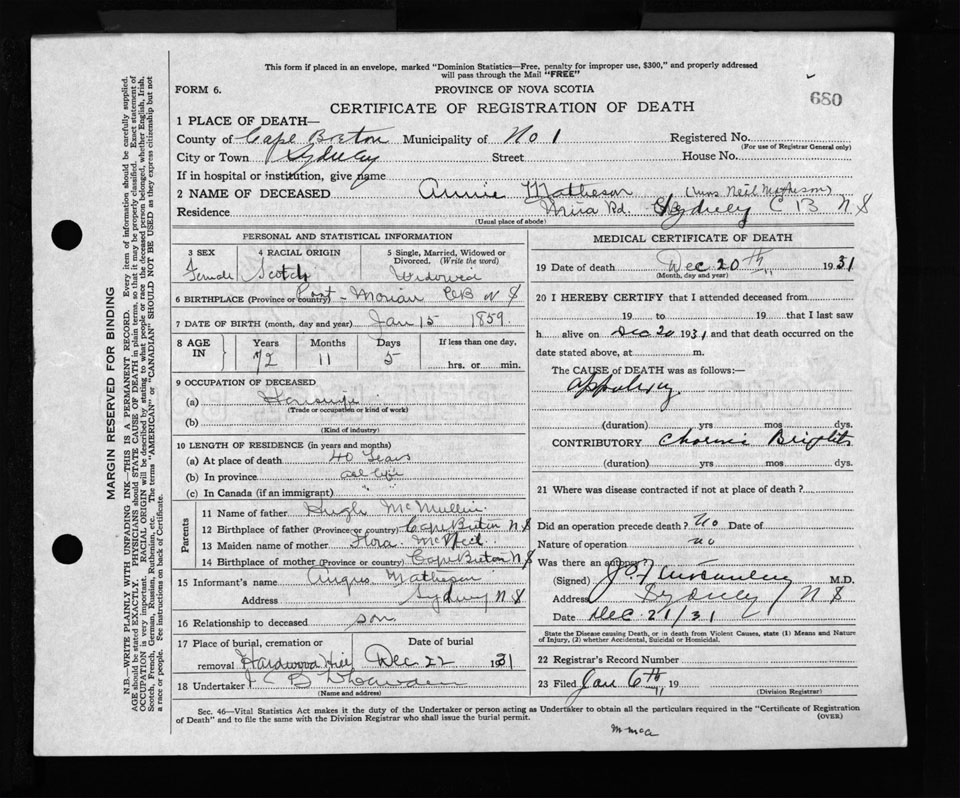 This form if placed in an envelope, marked "Dominion Statistics—Free, penalty for improper use, $300," and properly addressed
will pass through the Mail "FREE"
FORM 6. PROVINCE OF NOVA SCOTIA
680
CERTIFICATE OF REGISTRATION OF DEATH
1 PLACE OF DEATH—
County of Cape Breton Municipality of No 1 Registered No.
(For use of Registrar General only)
City or Town Sydney Street House No.
If in hospital or institution, give name
2 NAME OF DECEASED Annie Matheson (Mrs Neil Matheson)
Residence Mira Rd. Sydney C B N S
(Usual place of abode)
PERSONAL AND STATISTICAL INFORMATION
3 SEX 4 RACIAL ORIGIN 5 Single, Married, Widowed or Divorced. (Write the word)
Female Scotch Widowed
6 BIRTHPLACE (Province or country) Port Morien CB N S
7 DATE OF BIRTH (month, day and year) Jan 15 1859
8 AGE IN Years Months Days If less than one day,
72 11 5 hrs. or min.
9 OCCUPATION OF DECEASED
(a) Housewife
(Trade or occupation or kind of work)
(b)
(Kind of industry)
10 LENGTH OF RESIDENCE (in years and months)
(a) At place of death 40 Years
(b) In province all life
(c) In Canada (if an immigrant) " "
Parents
11 Name of father Hugh McMullin
12 Birthplace of father (Province or country) Cape Breton N S
13 Maiden name of mother Flora McNeil
14 Birthplace of mother (Province or country) Cape Breton N S
15 Informant's name Angus Matheson
Address Sydney N S
16 Relationship to deceased son
17 Place of burial, cremation or removal Hardwood Hill Date of burial Dec 22 1931
18 Undertaker
(Name and address)
MEDICAL CERTIFICATE OF DEATH
19 Date of death Dec 20th 1931
(Month, day and year)
20 I HEREBY CERTIFY that I attended deceased from
19 to 19 that I last saw
h alive on Dec 20 1931 and that death occurred on the
date stated above, at m.
The CAUSE of DEATH was as follows:—
(duration) yrs mos dys.
CONTRIBUTORY Chronic
(duration) yrs. mos. dys.
21 Where was disease contracted if not at place of death?
Did an operation precede death? No Date of
Nature of operation no
Was there an autopsy?
(Signed) M.D.
Address Sydney N S
Date Dec 21/31
State the Disease causing Death, or in death from Violent Causes, state (1) Means and Nature
of Injury, (2) whether Accidental, Suicidal or Homicidal.
22 Registrar's Record Number
23 Filed Jan 6th 19
(Division Registrar)
Sec. 46—Vital Statistics Act makes it the duty of the Undertaker or person acting as Undertaker to obtain all the particulars required in the "Certificate of Registration
of Death" and to file the same with the Division Registrar who shall issue the burial permit.
(OVER)
MARGIN RESERVED FOR BINDING
N.B.—WRITE PLAINLY WITH UNFADING INK—THIS IS A PERMANENT RECORD. Every item of information should be carefully supplied.
AGE should be stated EXACTLY. PHYSICIANS should STATE CAUSE OF DEATH in plain terms, so that it may be properly classified. Exact statement of
OCCUPATION is very important. RACIAL ORIGIN will be described by stating to what people or race the deceased person belonged, whether English, Irish,
Scotch, French, German, Russian, Ruthenian, etc. The terms "AMERICAN" or "CANADIAN" SHOULD NOT BE USED as they express citizenship but not
a race or people. See instructions on back of Certificate.